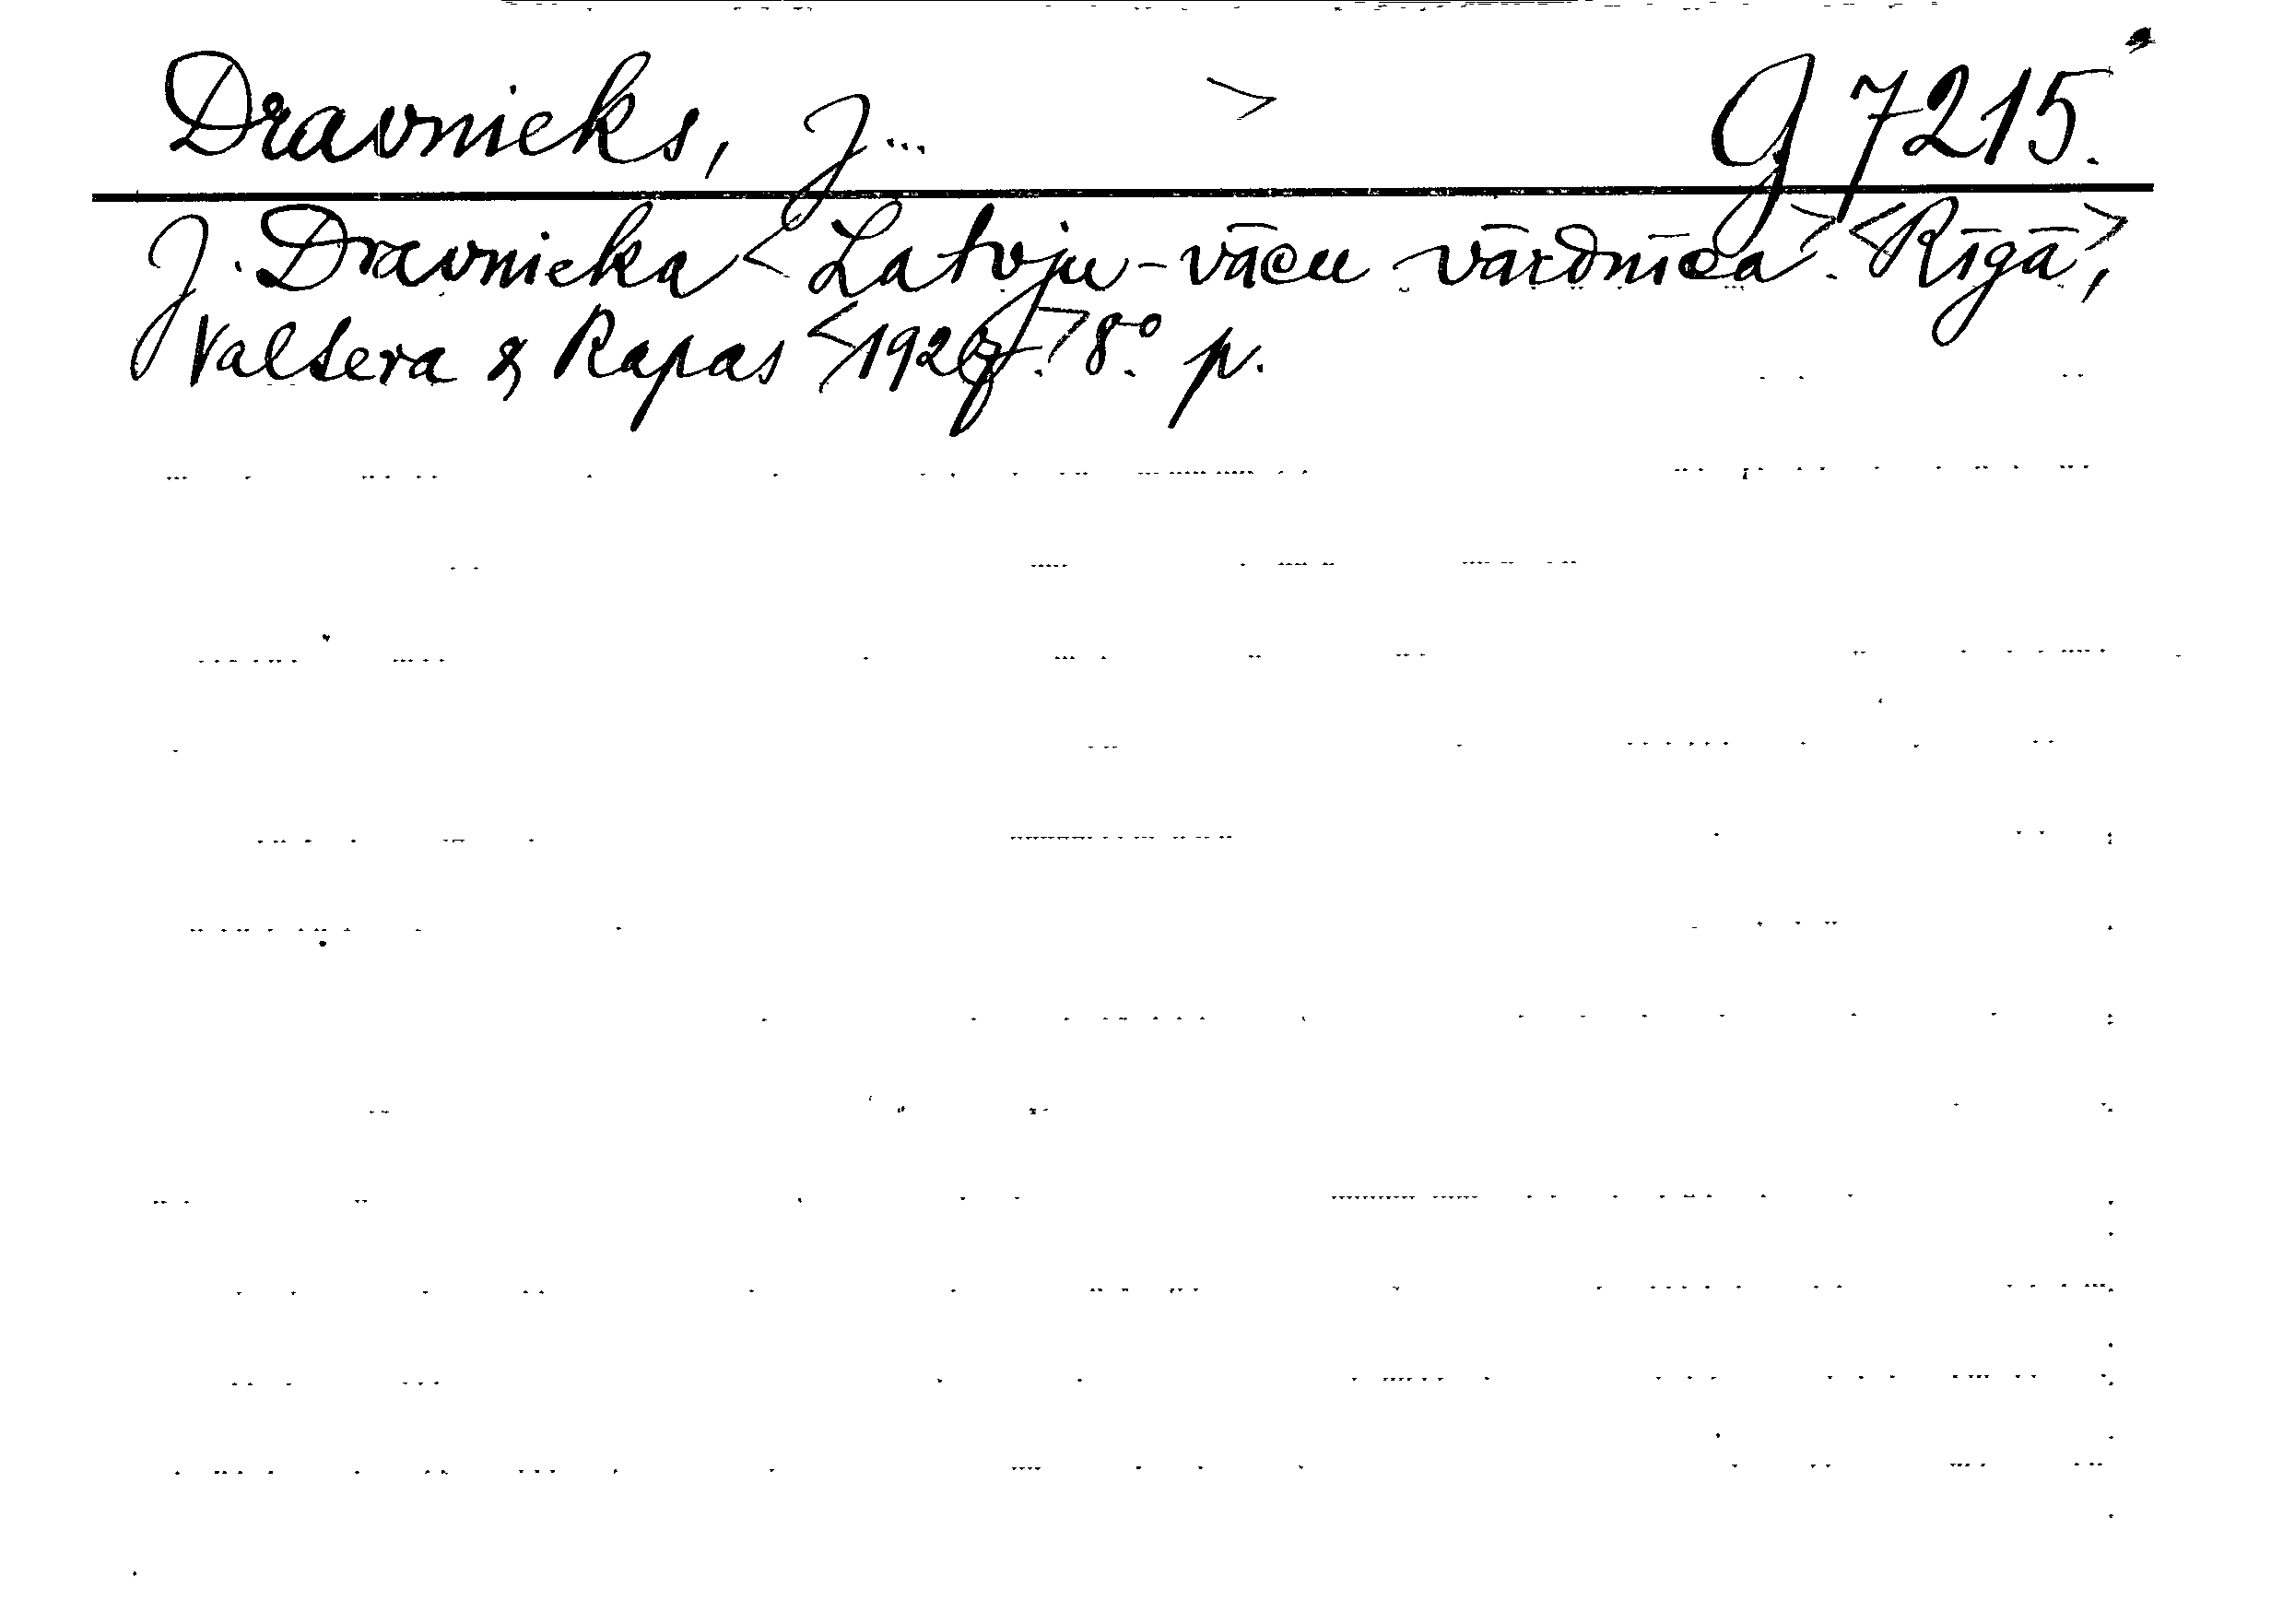 Dravnieks, J... > G 7215.
J. Dravnieka < Latvju-vācu vārdnīca>. <Rīgā>,
Valtera & Rapas <1927.> 8.° p.